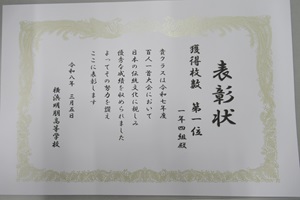 表彰状
獲得枚数 第一位
一年四組殿
貴クラスは令和七年度
百人一首大会において
日本の伝統文化に親しみ
優秀な成績を収められました
よってその努力を讃え
ここに表彰します
令和八年 三月五日
横浜明朋高等学校